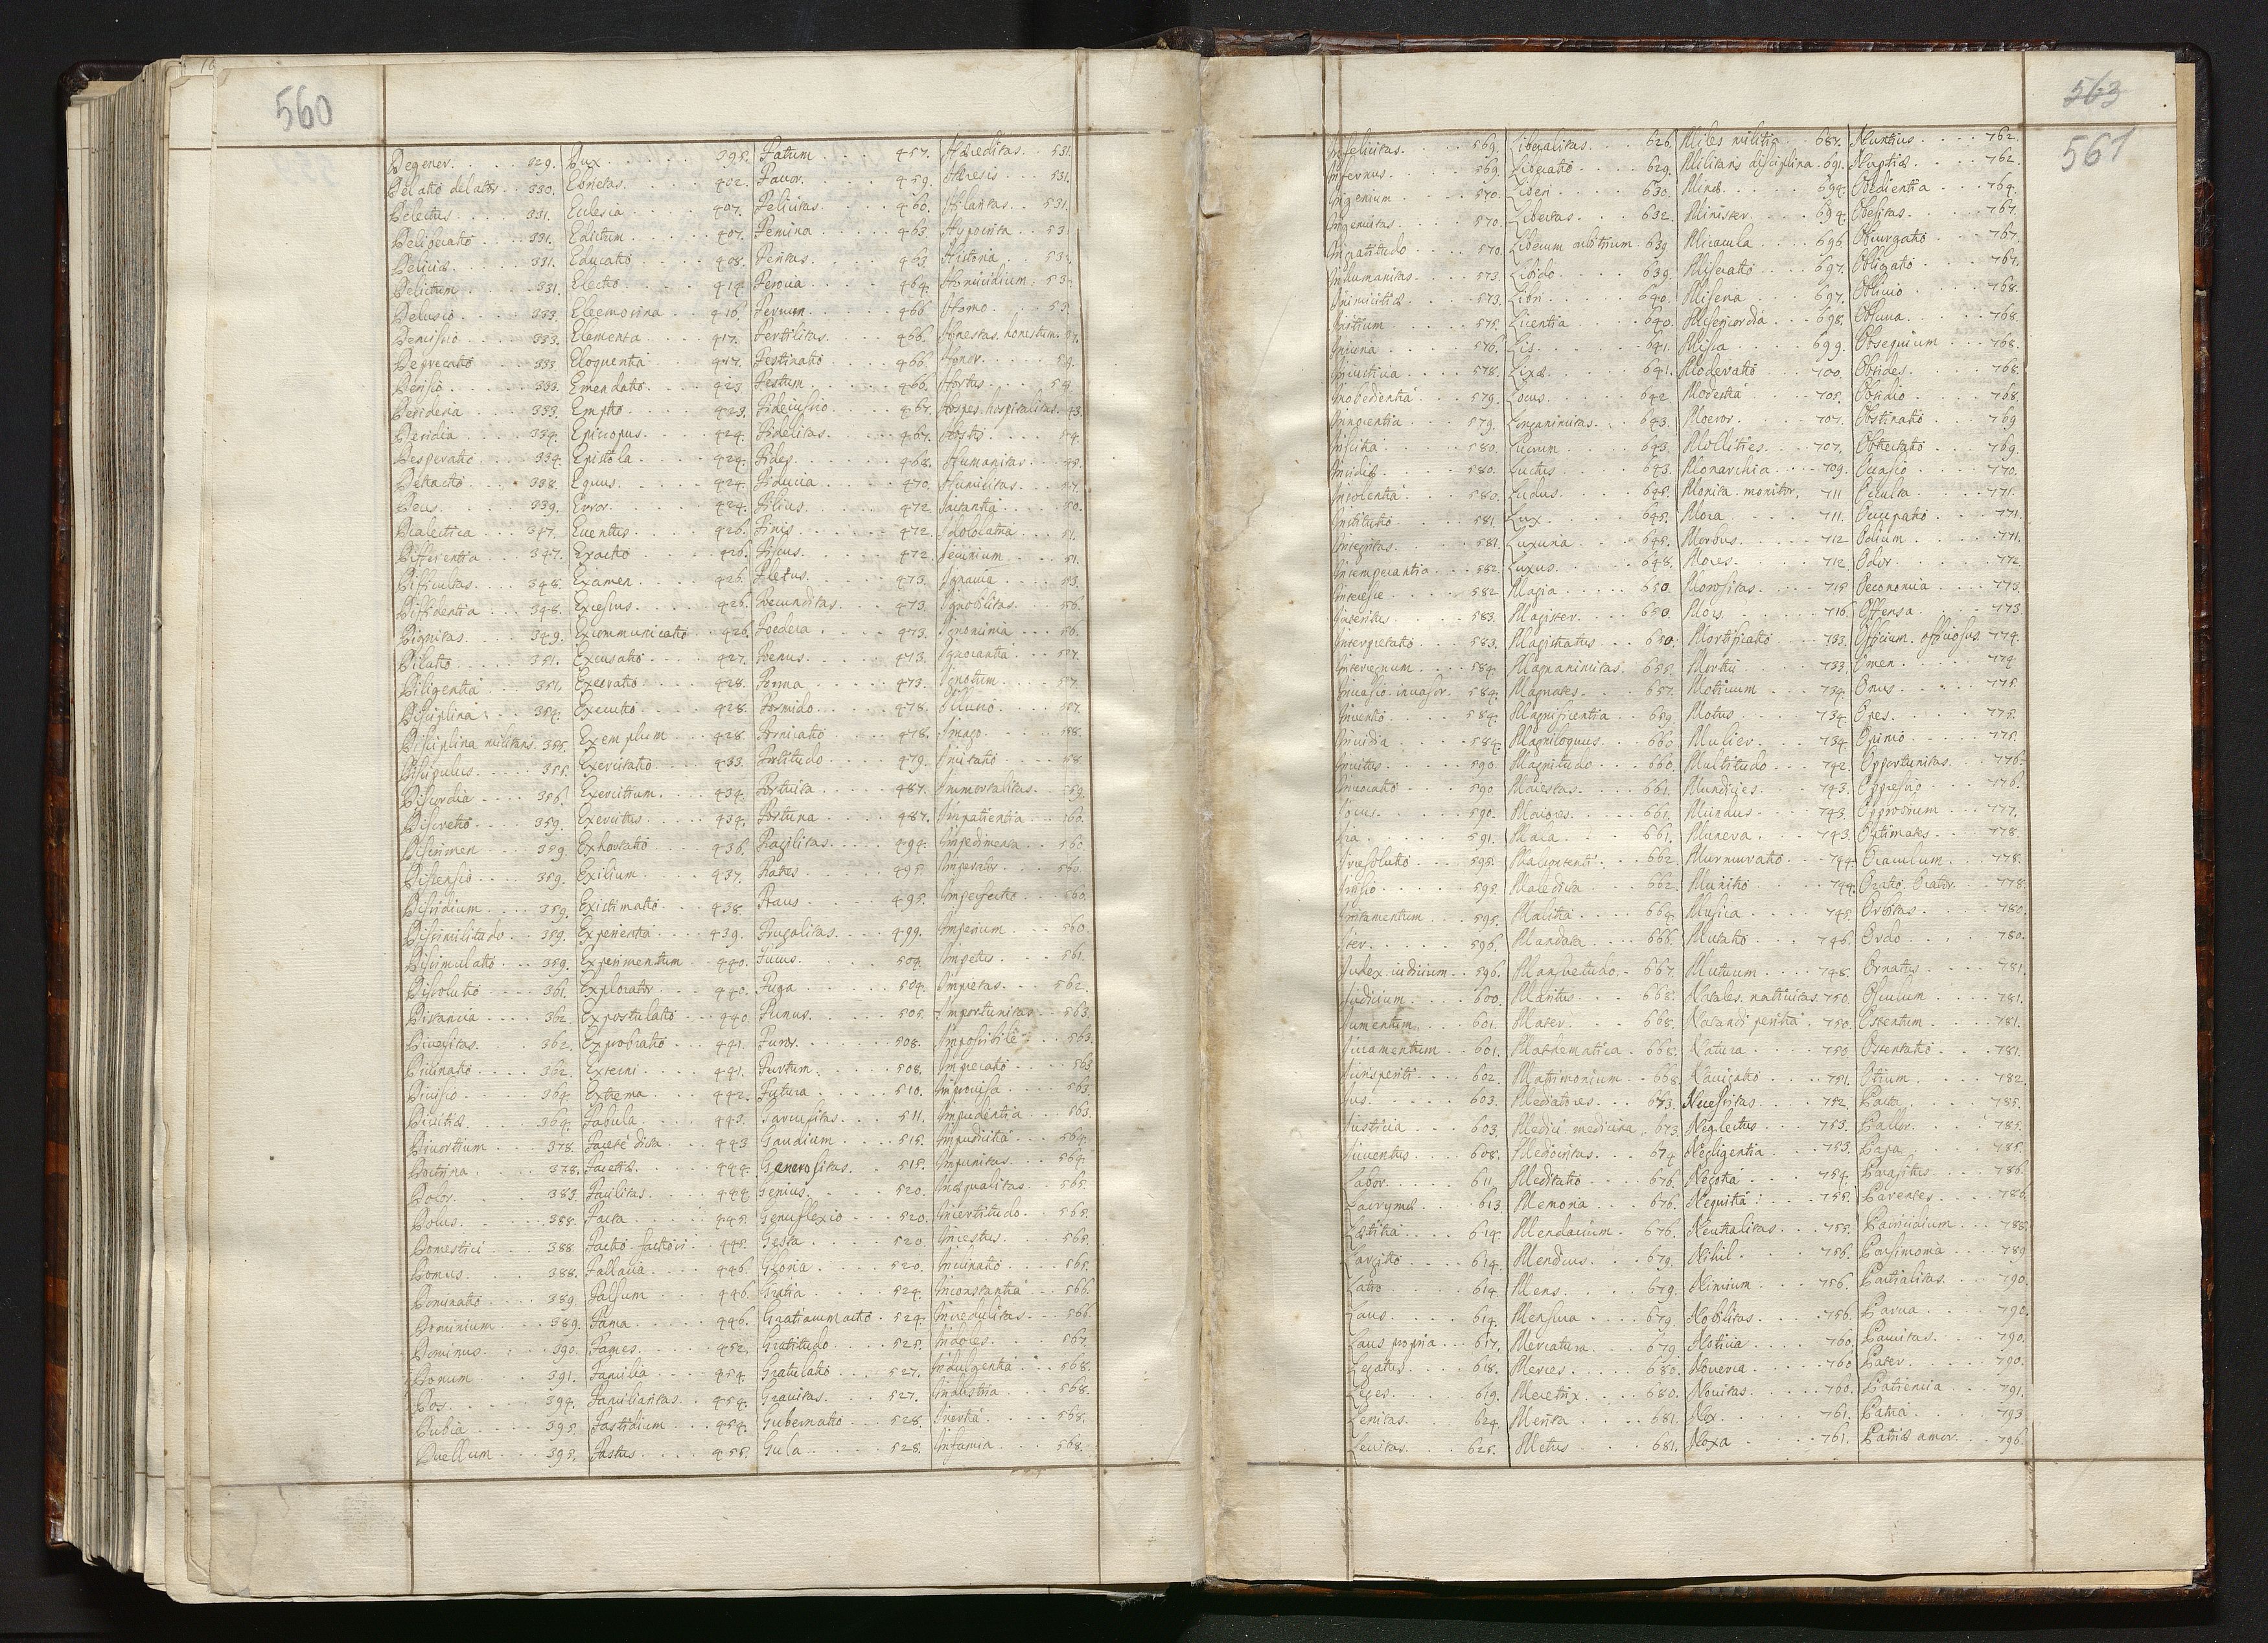 560
Degener. . . . 329.
Delatio delator. . 330.
Delectus. . . . 331.
Deliberatio. . . 331.
Deliciæ. . . . 331.
Delictum. . . . 331.
Delusio. . . . 333.
Demissio. . . . 333.
Deprecatio. . . 333
Desideria. . . . 333.
Desidia. . . . 334.
Desperatio. . . 334.
Detractio. . . . 338.
Deus. . . . 339.
Dialectica. . . 347.
Differentia. . . 347.
Difficultas. . . 348.
Diffidentia. . . 348.
Dignitas. . . . 349.
Dilatio. . . . 351.
Diligentia. . . 351.
Disciplina. . . 354.
Disciplina militaris. 355.
Discipulus. . . . 355.
Discordia. . . . 356.
Discretio. . . . 359.
Discrimen. . . 359.
Dissensio. . . . 359.
Dissidium. . . . 359.
Dissimilitudo. . 359.
Dissimulatio. . . 359.
Dissolutio. . . . 361.
Distantia. . . . 362.
Diversitas. . . . 362.
Divinatio. . . . 362.
Divisio. . . . 364.
Divitiæ. . . . 364.
Divortium. . . . 378.
Doctrina. . . . 378.
Dolor. . . . 383.
Dolus. . . . 388.
Domestici. . . . 388.
Domus. . . . 388.
Dominatio. . . . 389.
Dominium. . . . 389.
Dominus. . . . 390.
Donum. . . . 391.
Dos. . . . 394.
Dubia. . . . 395.
Duellum. . . . 395.
Dux. . . . 395.
Ebrietas. . . . 402.
Eclesia. . . . 407.
Edictum. . . . 407.
Educatio. . . . 408.
Electio. . . . 414.
Eleemosina. . . 416.
Elementa. . . . 417.
Eloquentia. . . 417.
Emendatio. . . 423.
Emptio. . . . 423.
Episcopus. . . . 424.
Epistola. . . . 424.
Equus. . . . 424.
Error. . . . 424.
Eventus. . . . 426.
Exactio. . . . 426.
Examen. . . . 426.
Excessus. . . . 426.
Excommunicatio. . 426.
Excusatio. . . . 427.
Execratio. . . . 428.
Executio. . . . 428.
Exemplum. . . . 428.
Exercitatio. . . 433.
Exercitium. . . 434.
Exercitus. . . . 434.
Exhortatio. . . 436.
Exilium. . . . 437.
Existimatio. . . 438.
Experientia. . . 439.
Experimentum. . 440.
Explorator. . . 440.
Expostulatio. . . 440.
Exprobratio. . . 441.
Externi. . . . 441.
Extrema. . . . 442.
Fabula. . . . 443.
Faceté dicta. . . 443.
Facetiæ. . . . 444.
Facilitas. . . . 444.
Facta. . . . 445.
Factio factiosi. . 445.
Fallacia. . . . 446.
Falsum. . . . 446.
Fama. . . . 446.
Fames. . . . 452.
Familia. . . . 454.
Familiaritas. . . 454.
Fastidium. . . . 454.
Fastus. . . . 455.
Fatum. . . . 457.
Favor. . . . 459.
Felicitas. . . . 460.
Femina. . . . 463.
Feritas. . . . 463
Ferocia. . . . 464.
Ferrum. . . . 466
Fertilitas. . . . 466.
Festinatio. . . . 466.
Festum. . . . 466.
Fideiussio. . . . 467.
Fidelitas. . . . 467.
Fides. . . . 468.
Fiducia. . . . 470.
Filius. . . . 472
Finis. . . . 472.
Fiscus. . . . 472.
Fletus. . . . 473.
Fecunditas. . . 473.
Foedera. . . . 473.
Foenus. . . . 473.
Forma. . . . 473.
Formido. . . . 478.
Fornicatio. . . 478.
Fortitudo. . . . 479.
Fortuita. . . . 487.
Fortuna. . . . 487.
Fragilitas. . . . 494.
Fratres. . . . 495.
Fraus. . . . 495.
Frugalitas. . . . 499.
Fucus. . . . 504.
Fuga. . . . 504.
Funus. . . . 505.
Furor. . . . 508.
Furtum. . . . 508.
Futura. . . . 510.
Garrulitas. . . . 511.
Gaudium. . . . 515.
Generositas. . . 515.
Genius. . . . 520.
Genuflexio. . . 520.
Gesta. . . . 520
Gloria. . . . 520.
Gratia. . . . 524.
Gratiarum actio. . 524.
Gratitudo. . . . 525.
Gratulatio. . . . 527.
Gravitas. . . . 527.
Gubernatio. . . 528.
Gula. . . . 528.
Hæreditas. . . 531.
Hæresis. . . . 531.
Hilaritas. . . 531.
Hypocrita. . . 53
Historia. . . . 53
Homicidium. . 53
Homo. . . . 53
Honestas. honestum.
Honor. . . .
Hortus. . . . 54
Hospes. hospitalitas. 43.
Hostis. . . .
Humanitas. . . 45.
Humilitas. . . 47.
Jactantia. . . 50.
Idololatria. . . 51.
Jeiunium. . . . 51.
Ignavia. . . . 53.
Ignobilitas. . . 56.
Ignominia. . . 56.
Ignorantia. . . 557.
Ignotum. . . . 57
Illusio. . . . 557.
Imago. . . . 558.
Imitatio. . . . 58
Immortalitas. . . 559.
Impatientia. . . 560.
Impedimenta. . . 560
Imperator. . . . 560.
Imperfectio. . . 560.
Imperium. . . . 560
Impetus. . . . 561.
Impietas. . . . 562.
Importunitas. . . 563.
Impossibile. . . 563.
Imprecatio. . . 563
Improvisa. . . . 563
Impudentia. . . 563.
Impudicitia. . . 564.
Impunitas. . . . 564.
Inæqualitas. . . 565.
Incertitudo. . . 565.
Incestus. . . . 565.
Inclinatio. . . . 565.
Inconstantia. . . 566.
Incredulitas. . . 566.
Indoles. . . . 567.
Indulgentia. . . 568.
Industria. . . . 568.
Inertia. . . . 568.
Infamia. . . . 568.
563
561
Infelicitas. . . . 569.
Infernus. . . . 569.
Ingenium. . . . 570.
Ingenuitas. . . . 570.
Ingratitudo. . . 570.
Inhumanitas. . . 573.
Inimicitiæ. . . . 573.
Initium. . . . 575.
Iniuria. . . . 576.
Iniustitia. . . . 578.
Inobedientia. . . 579.
579.
Inscitia. . . . 580.
Insidiæ. . . . 580.
Insolentia. . . . 580.
Institutio. . . . 581.
Integritas. . . . 581.
Intemperantia. . . 582.
Interesse. . . . 582
Interitus. . . . 583.
Interpretatio. . . 583.
Interregnum. . . 584.
Invasio. invasor. . 584.
Inventio. . . . 584.
Invidia. . . . 584.
Invitus. . . . 590.
Invocatio. . . . 590
Iocus. . . . 590.
Ira. . . . 591.
Irresolutio. . . . 595.
Irrisio. . . . 595.
Irritamentum. . . 595.
Iter. . . . 596.
Iudex. iudicium. . 596.
Iudicium. . . . 600.
Iumentum. . . . 601.
Iuramentum. . . 601.
Iurisperiti. . . . 602.
Ius. . . . 603.
Iustitia. . . . 603.
Iuventus. . . . 608.
Labor. . . . 611.
Lacrymæ. . . . 613
Lætitia. . . . 614.
Largitio. . . . 614.
Latro. . . . 614.
Laus. . . . 614.
Laus propria. . . 617.
Legatus. . . . 618.
Leges. . . . 619.
Lenitas. . . . 624.
Levitas. . . . 625.
Liberalitas. . . . 626.
Liberatio. . . . 629.
Liberi. . . . 630.
Libertas. . . . 632.
Liberum arbitrium. 639.
Libido. . . . 639.
Libri. . . . 640.
Licentia. . . . 640.
Lis. . . . 641.
Lixæ. . . . 641.
Locus. . . . 642.
Longanimitas. . . 643.
Lucrum. . . . 643.
Luctus. . . . 643.
Ludus. . . . 645.
Lux. . . . 645.
Luxuria. . . . 645.
Luxus. . . . 648.
Magia. . . . 650
Magister. . . . 650.
Magistratus. . . 650.
Magnanimitas. . 655.
Magnates. . . . 657.
Magnificentia. . . 659.
Magniloquus. . . 660.
Magnitudo. . . . 660.
Maiestas. . . . 661.
Maiores. . . . 661.
Mala. . . . 661.
662.
Maledica. . . . 662.
Malitia. . . . 664.
Mandata. . . . 666.
Mansuetudo. . . 667.
Maritus. . . . 668.
Mater. . . . 668.
Mathematica. . . 668.
Matrimonium. . . 668.
Mediatores. . . . 673.
Medici. medicina. . 673.
Mediocritas. . . . 674.
Meditatio. . . . 676.
Memoria. . . . 676.
Mendacium. . . . 676.
Mendicus. . . . 679.
Mens. . . . 679.
Mensura. . . . 679.
Mercatura. . . . 679.
Merces. . . . 680.
Meretrix. . . . 680.
Merita. . . . 681.
Metus. . . . 681.
Miles militia. . . 687.
Militaris disciplina. 691.
Minæ. . . . 694.
Minister. . . . 694.
Miracula. . . . 696.
Miseratio. . . . 697.
Miseria. . . . 697.
Misericordia. . . 698.
Missa. . . . 699.
Moderatio. . . . 700.
Modestia. . . . 705.
Moeror. . . . 707.
Mollities. . . . 707.
Monarchia. . . . 709.
Monita. monitor. . 711
Mora. . . . 711.
Morbus. . . . 712
Mores. . . . 712.
Morositas. . . . 715.
Mors. . . . 716.
Mortificatio. . . 733.
Mortui. . . . 733.
Motivum. . . . 734.
Motus. . . . 734.
Mulier. . . . 734.
Multitudo. . . . 742.
Mundities. . . . 743.
Mundus. . . . 743.
Munera. . . . 743.
Murmuratio. . . 744.
Munitio. . . . 744.
Musica. . . . 745.
Mutatio. . . . 746.
Mutuum. . . . 748.
Natales. nativitas. 750.
Natandi peritia. . 750.
Natura. . . . 750
Navigatio. . . . 751.
Necessitas. . . . 752.
Neglectus. . . . 753.
Negligentia. . . 753.
Negotia. . . . 754.
Nequitia. . . . 755.
Neutralitas. . . 755.
Nihil. . . . 756.
Nimium. . . . 756.
Nobilitas. . . . 756.
Notitia. . . . 760.
Noverca. . . . 760.
Novitas. . . . 760.
Nox. . . . 761.
Noxa. . . . 761.
Nuntius. . . . 762.
Nuptiæ. . . . 762.
Obedientia. . . . 764.
Obesitas. . . . 767.
Obiurgatio. . . . 767.
Obligatio. . . . 767.
Oblivio. . . . 768.
Obscura. . . . 768.
Obsequium. . . . 768.
Obsides. . . . 768.
Obsidio. . . . 768.
Obstinatio. . . . 769
Obtrectatio. . . 769.
Occasio. . . . 770.
Occulta. . . . 771.
Occupatio. . . . 771.
Odium. . . . 771.
Odor. . . . 772.
Oeconomia. . . . 773.
Offensa. . . . 773.
Officium. officiosus. 774.
Omen. . . . 774.
Onus. . . . 775.
Opes. . . . 775.
Opinio. . . . 775.
Opportunitas. . . 776.
Oppressio. . . . 776.
Opprobrium. . . . 777.
Optimates. . . . 778.
Oraculum. . . . 778.
Oratio. Orator. . 778.
Orbitas. . . . 780.
Ordo. . . . 780.
Ornatus. . . . 781.
Osculum. . . . 781.
Ostentum. . . . 781.
Ostentatio. . . . 781.
Otium. . . . 782.
Pacta. . . . 785.
Pallor. . . . 785.
Papa. . . . 785.
Parasitus. . . . 786.
Parentes. . . . 786.
Parricidium. . . 788.
Parsimonia. . . . 789
Partialitas. . . . 790.
Parva. . . . 790.
Parvitas. . . . 790.
Pater. . . . 790.
Patientia. . . . 791.
Patria. . . . 793.
Patriæ amor. . . 796.